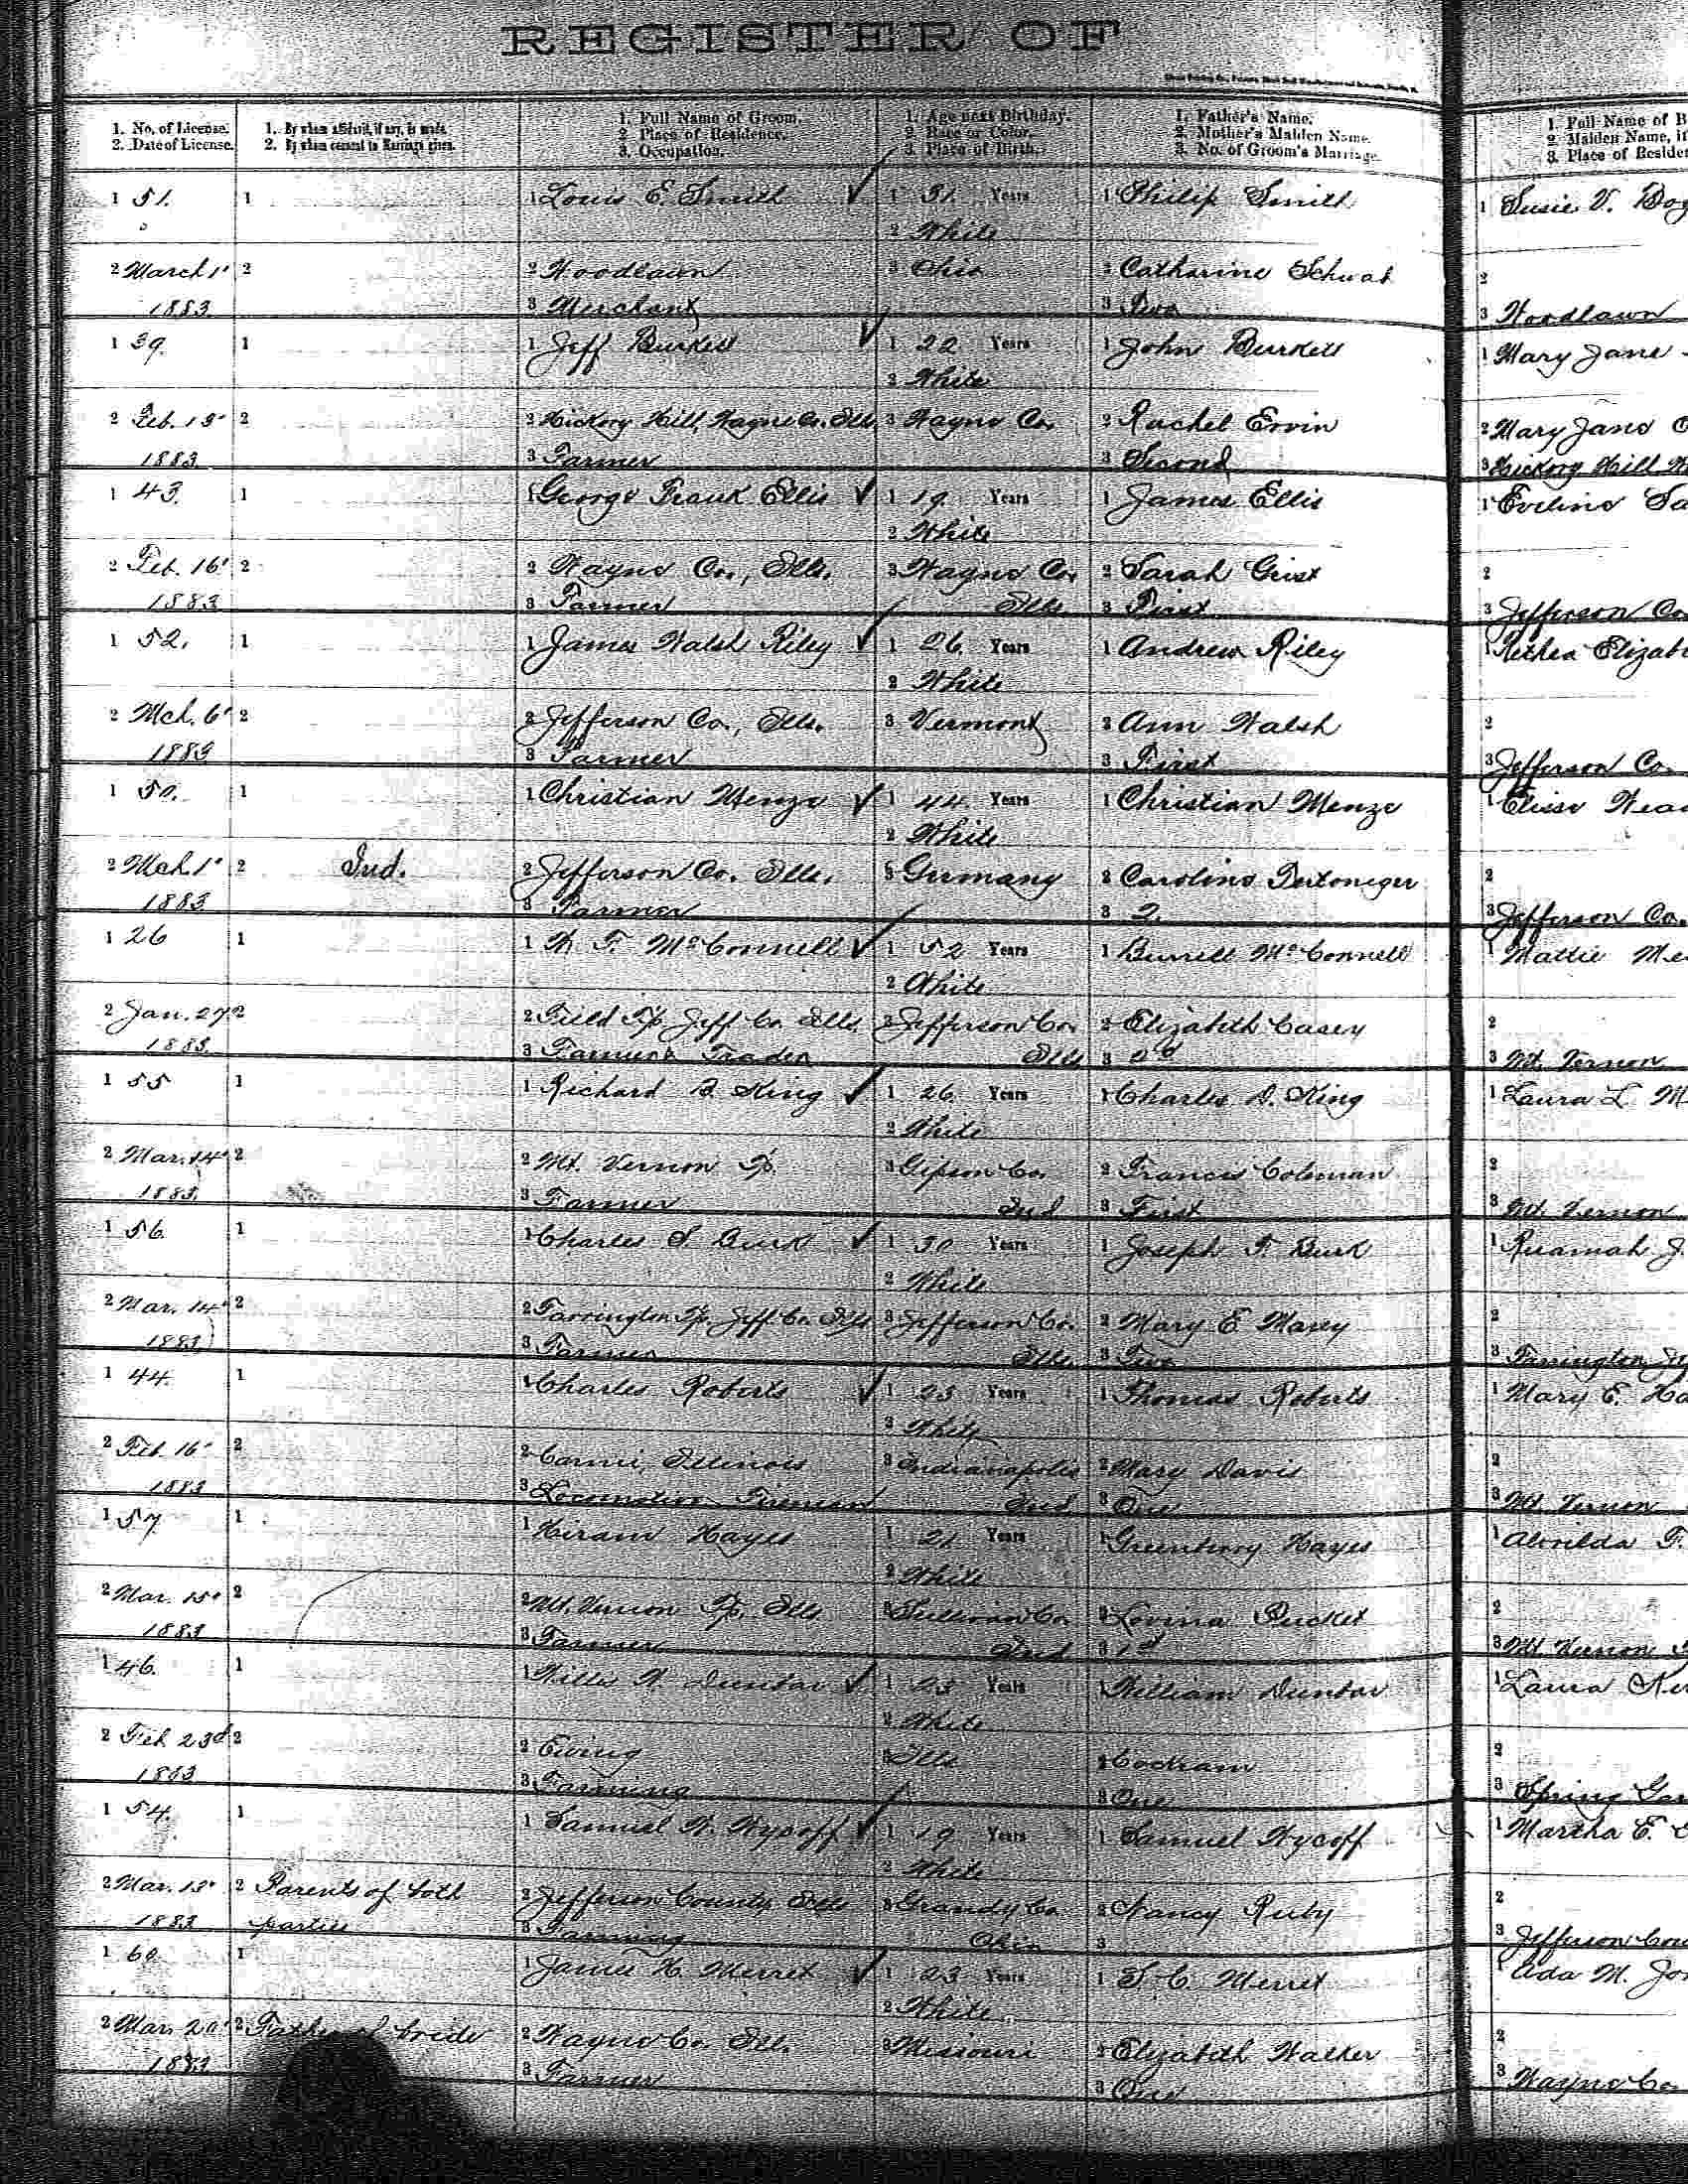 REGISTER OF
1. No. of License.
2. Date of License.
1. By whom affidavit, if any, is made.
2. By whom consent to Marriage given.
1. Full Name of Groom.
2. Place of Residence.
3. Occupation.
1. Age next Birthday.
2. Race or Color.
3. Place of Birth.
1. Father's Name.
2. Mother's Maiden Name.
3. No. of Groom's Marriage.
1. Full Name of B
2. Maiden Name, if
3. Place of Reside
1 51. 1 1 Louis E. Smith 1 31 Years 1 Philip Smith 1 Susie V. Bog
2 White
2 March 1" 2 2 Woodlawn 3 Ohio 2 Catharine Schwab 2
1883 3 Merchant 3 Two 3 Woodlawn
1 39. 1 1 Jeff Burkett 1 22 Years 1 John Burkett 1 Mary Jane
2 White
2 Feb. 15" 2 2 Hickory Hill, Wayne Co. Ills. 3 Wayne Co. 2 Rachel Ervin 2 Mary Jane
1883 3 Farmer 3 Second 3 Hickory Hill W
1 43. 1 1 George Frank Ellis 1 19 Years 1 James Ellis 1 Eveline Sa
2 White
2 Feb. 16" 2 2 Wayne Co., Ills. 3 Wayne Co. 2 Sarah Grist 2
1883 3 Farmer Ills. 3 First 3 Jefferson Co.
1 52. 1 1 James Walsh Riley 1 26 Years 1 Andrew Riley 1 Elizab
2 White
2 Mch. 6" 2 2 Jefferson Co., Ills. 3 Vermont 2 Ann Walsh 2
1883 3 Farmer 3 First 3 Jefferson Co.
1 50. 1 1 Christian Menze 1 44 Years 1 Christian Menze 1 Elise
2 White
2 Mch. 1" 2 Jud. 2 Jefferson Co. Ills. 3 Germany 2 Caroline 2
1883 3 Farmer 3 2. 3 Jefferson Co.
1 26 1 1 W. F. McConnell 1 52 Years 1 Burrell McConnell 1 Mattie Me
2 White
2 Jan. 27 2 2 Field Tp Jeff Co Ills. 3 Jefferson Co. 2 Elizabeth Casey 2
1883. 3 Farmer & Trader Ills 3 2d 3 Mt. Vernon
1 55 1 1 Richard B. King 1 26 Years 1 Charles D. King 1 Laura L. M
2 White
2 Mar. 14" 2 2 Mt. Vernon Tp. 3 Gipson Co. 2 Francis Coleman 2
1883. 3 Farmer Ind 3 First 3 Mt. Vernon
1 56 1 1 Charles S. Burk 1 30 Years 1 Joseph F. Burk 1 Ruamah J.
2 White
2 Mar. 14" 2 2 Farrington Tp. Jeff. Co. Ills 3 Jefferson Co. 2 Mary E. Maxey 2
1883 3 Farmer Ills. 3 Two 3 Farrington
1 44. 1 1 Charles Roberts 1 23 Years 1 Thomas Roberts 1 Mary E. Ha
2 White
2 Feb. 16" 2 2 Carmi, Illinois 3 Indianapolis 2 Mary Davis 2
1883 3 Locomotive Fireman Ind 3 One 3 Mt. Vernon
1 57 1 1 Hiram Hayes 1 21 Years 1 Greenberry Hayes 1 F.
2 White
2 Mar. 15" 2 2 Mt. Vernon Tp. Ills 3 Sullivan Co. 2 Lovina Pucket 2
1883 3 Farmer Ind 3 1st 3 Mt Vernon
1 46. 1 1 Willis W. Dunbar 1 23 Years 1 William Dunbar 1 Laura
2 White
2 Feb 23d 2 2 Ewing 3 Ills 2 Cockram 2
1883 3 Farming 3 One 3 Spring Gar
1 54. 1 1 Samuel W. Wycoff 1 19 Years 1 Samuel Wycoff 1 Martha E.
2 White
2 Mar. 13" 2 Parents of both 2 Jefferson County, Ills 3 Grandy Co. 2 Nancy Ruby 2
1883 parties 3 Farming Ohio 3 3 Jefferson Cou
1 60 1 1 James H. Merret 1 23 Years 1 S. C. Merret 1 Ada M. Jo
2 White
2 Mar. 20" 2 Father of bride 2 Wayne Co. Ill. 3 Missouri 2 Elizabeth Walker 2
1883 3 Farmer 3 One 3 Wayne Co.